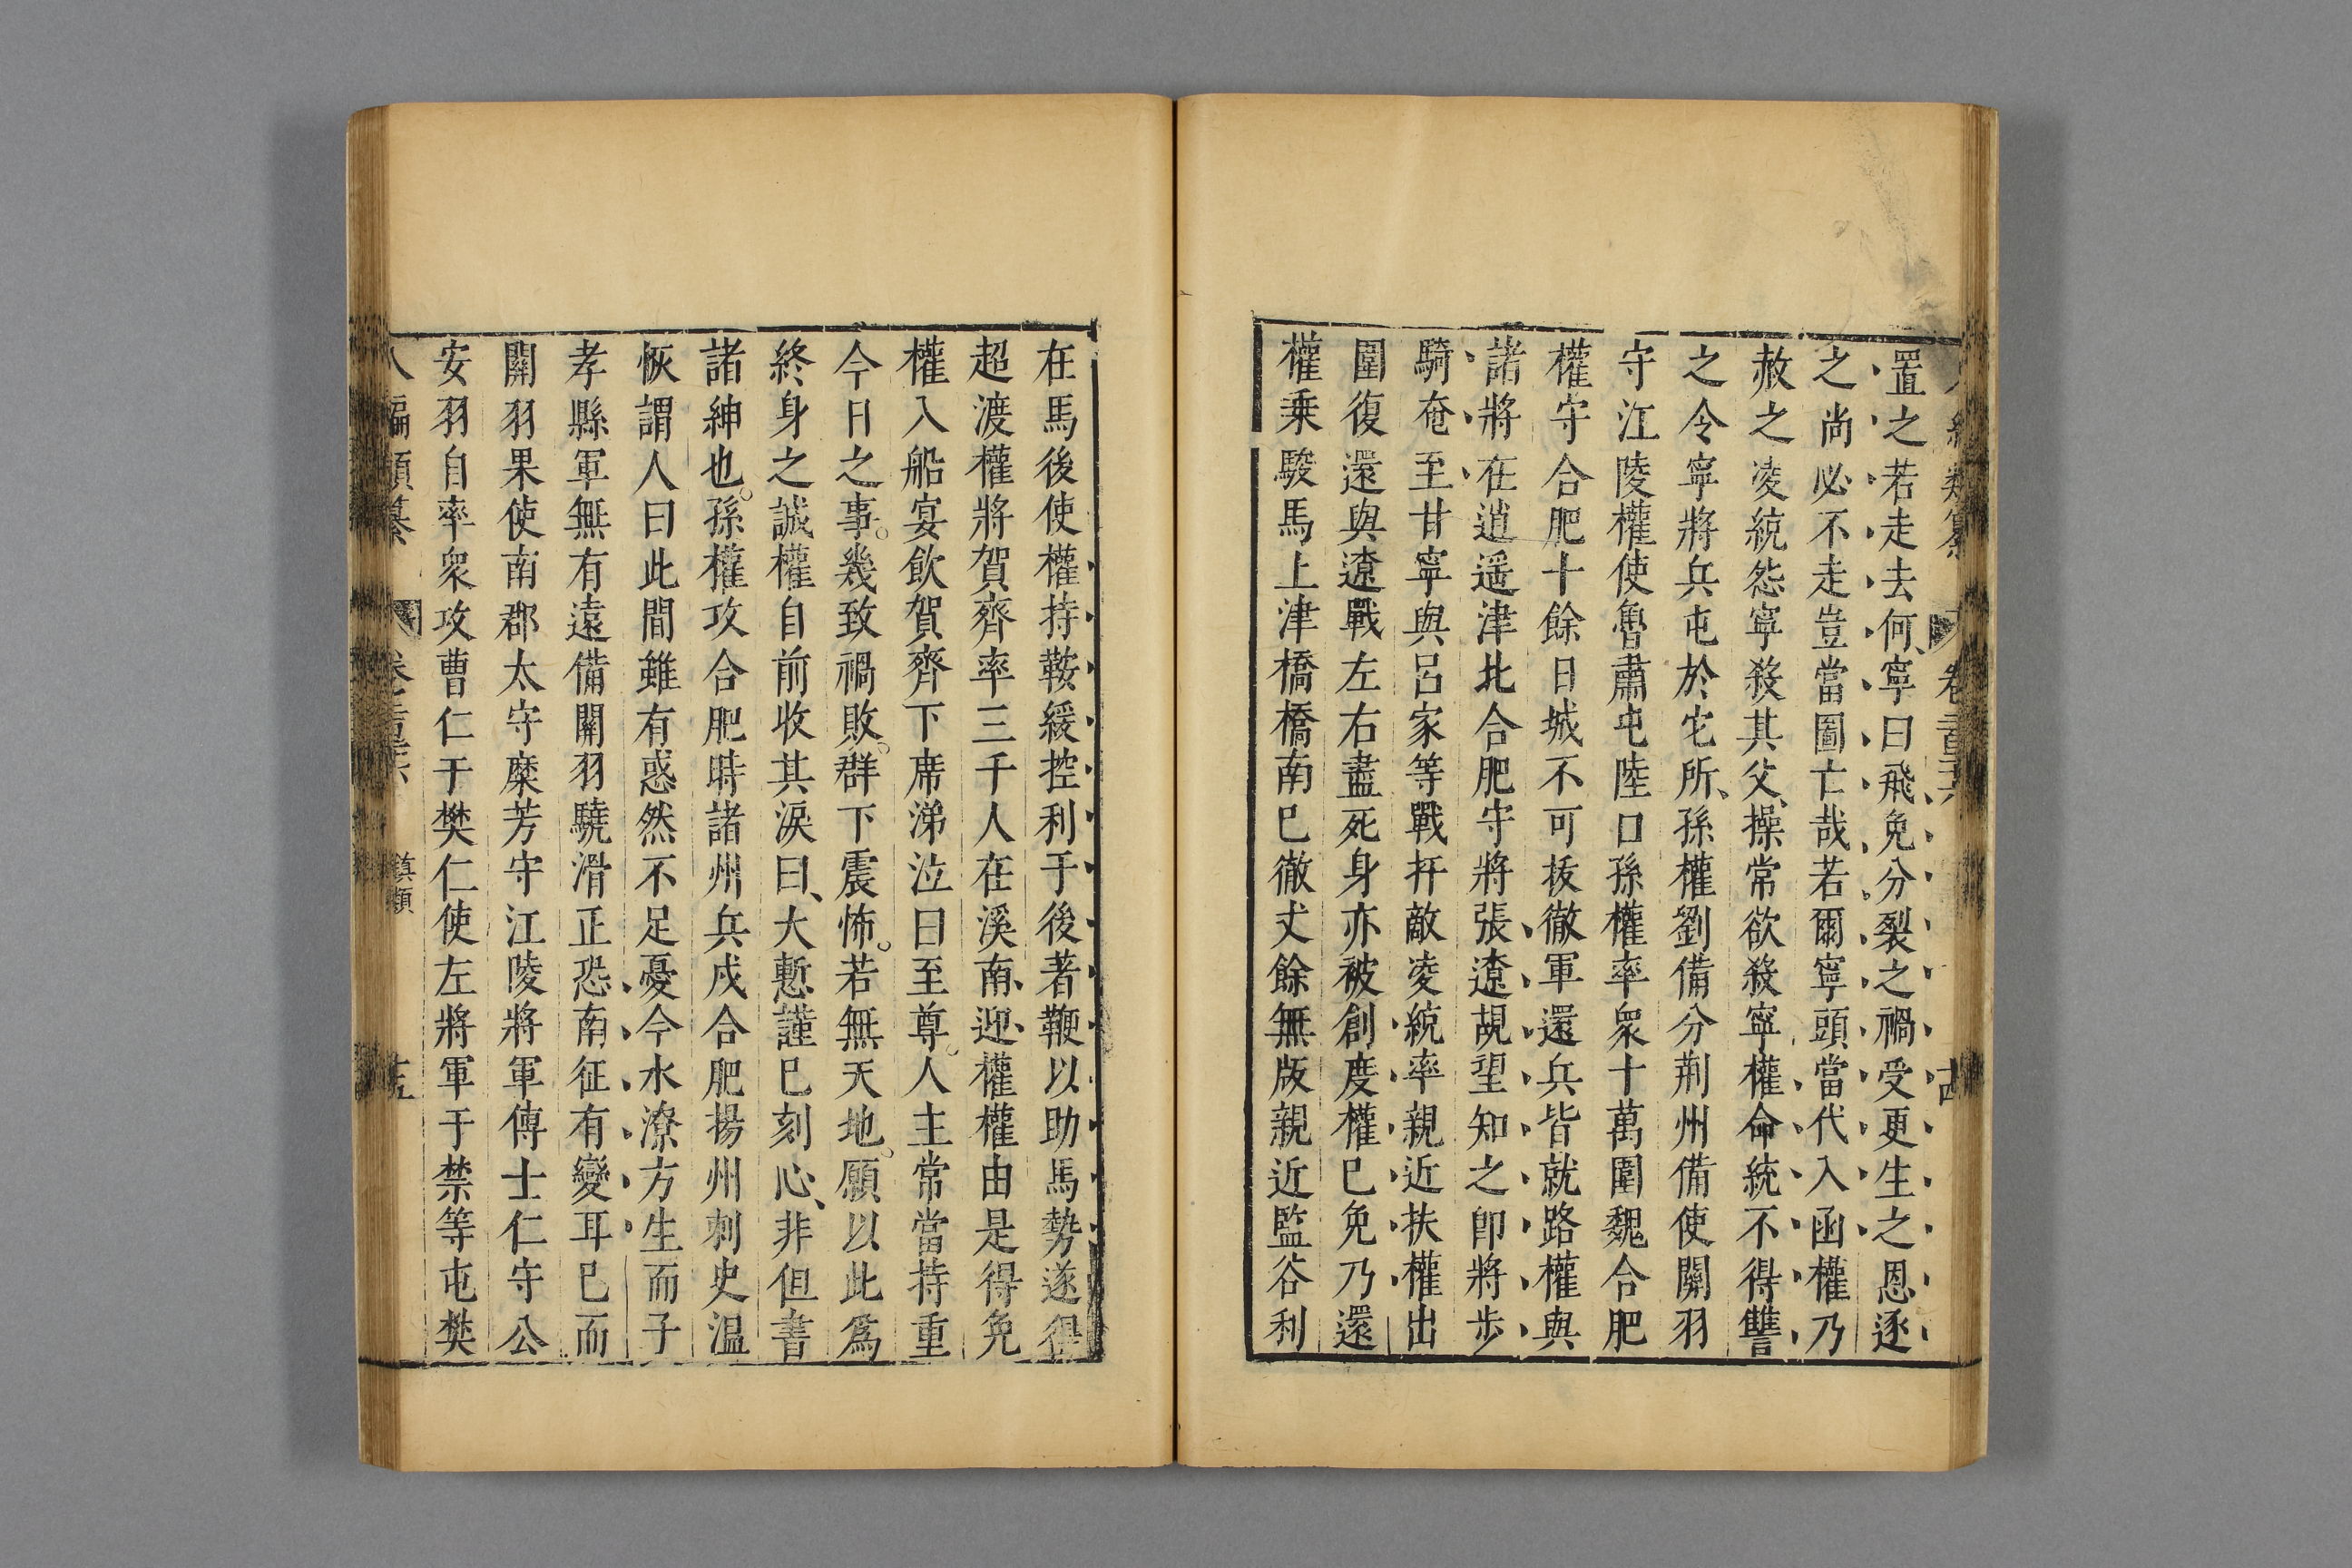 置之若走去何寧曰飛免分裂之禍受更生之恩逐
之尚必不走豈當圖亡哉若爾寧頭當代入函權乃
赦之凌統怨寧殺其父操常欲殺寧權命統不得讐
之令寧將兵屯於它所孫權劉備分荆州備使關羽
守江陵權使魯肅屯陸口孫權率衆十萬圍魏合肥
權守合肥十餘日城不可拔徹軍還兵皆就路權與
諸將在逍遥津北合肥守將張遼覘望知之卽將步
騎奄至甘寧與呂家等戰扞敵凌統率親近扶權出
圍復還與遼戰左右盡死身亦被創度權已免乃還
權乗駿馬上津橋橋南已徹丈餘無版親近監谷利
在馬後使權持鞍緩控利于後著鞭以助馬勢遂得
超渡權將賀齊率三千人在溪南迎權權由是得免
權入船宴飲賀齊下席涕泣曰至尊人主常當持重
今日之事幾致禍敗群下震怖若無天地願以此爲
終身之誠權自前收其淚曰大慙謹已刻心非但書
諸紳也孫權攻合肥時諸州兵戍合肥揚州刺史温
恢謂人曰此間雖有惑然不足憂今水潦方生而子
孝縣軍無有遠備關羽驍滑正恐南征有變耳已而
關羽果使南郡太守糜芳守江陵將軍傅士仁守公
安羽自率衆攻曹仁于樊仁使左將軍于禁等屯樊
八編類纂 卷 鎮類